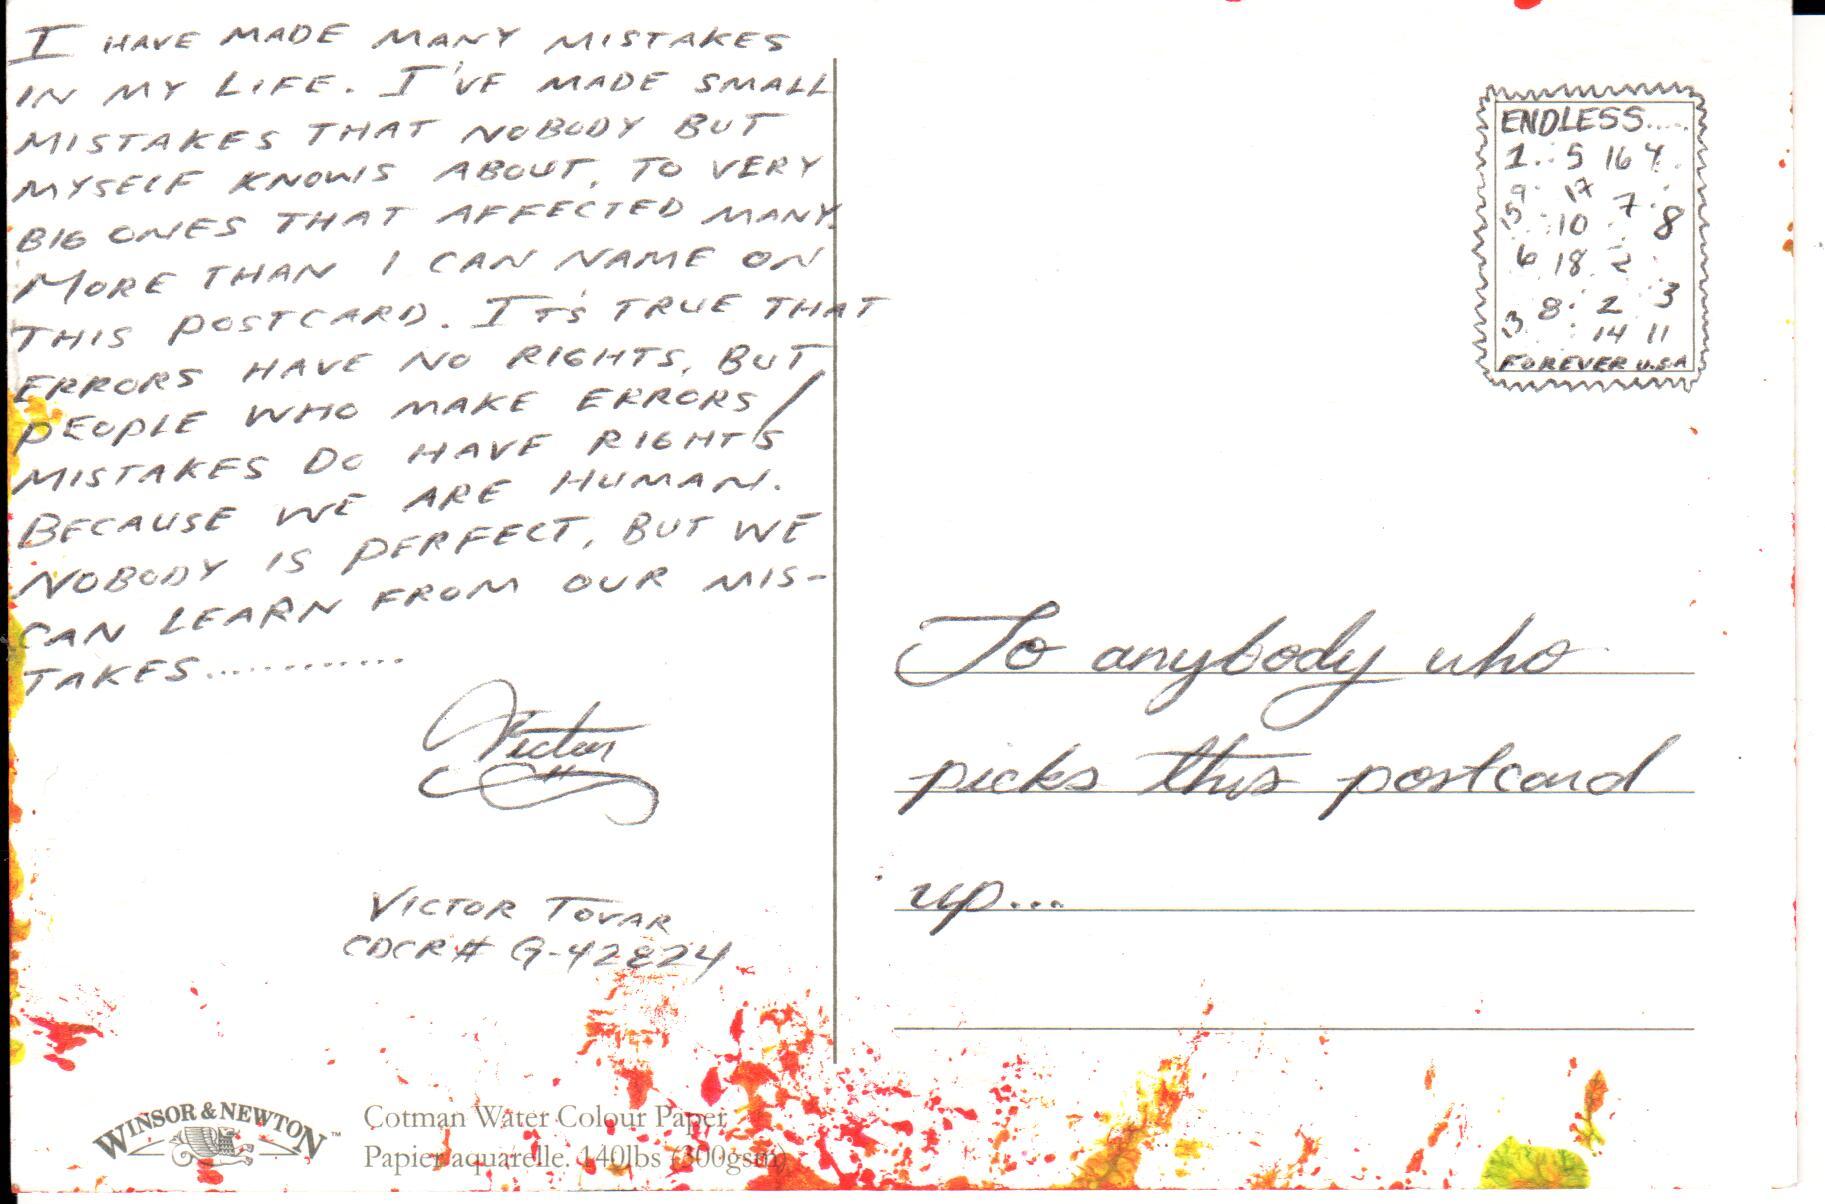 I HAVE MADE MANY MISTAKES
IN MY LIFE. I'VE MADE SMALL
MISTAKES THAT NOBODY BUT
MYSELF KNOWS ABOUT, TO VERY
BIG ONES THAT AFFECTED MANY.
MORE THAN I CAN NAME ON
THIS POSTCARD. IT'S TRUE THAT
ERRORS HAVE NO RIGHTS, BUT
PEOPLE WHO MAKE ERRORS/
MISTAKES DO HAVE RIGHTS
BECAUSE WE ARE HUMAN.
NOBODY IS PERFECT, BUT WE
CAN LEARN FROM OUR MIS-
TAKES............
Victor
VICTOR TOVAR
CDCR# G-42824
WINSOR & NEWTON™
Cotman Water Colour Paper
Papier aquarelle. 140lbs (300gsm)
ENDLESS.....
1. 5 16 4
9 17 7
5 10 8
6 18 2
3 8 2 3
14 11
FOREVER U.S.A
To anybody who
picks this postcard
up...